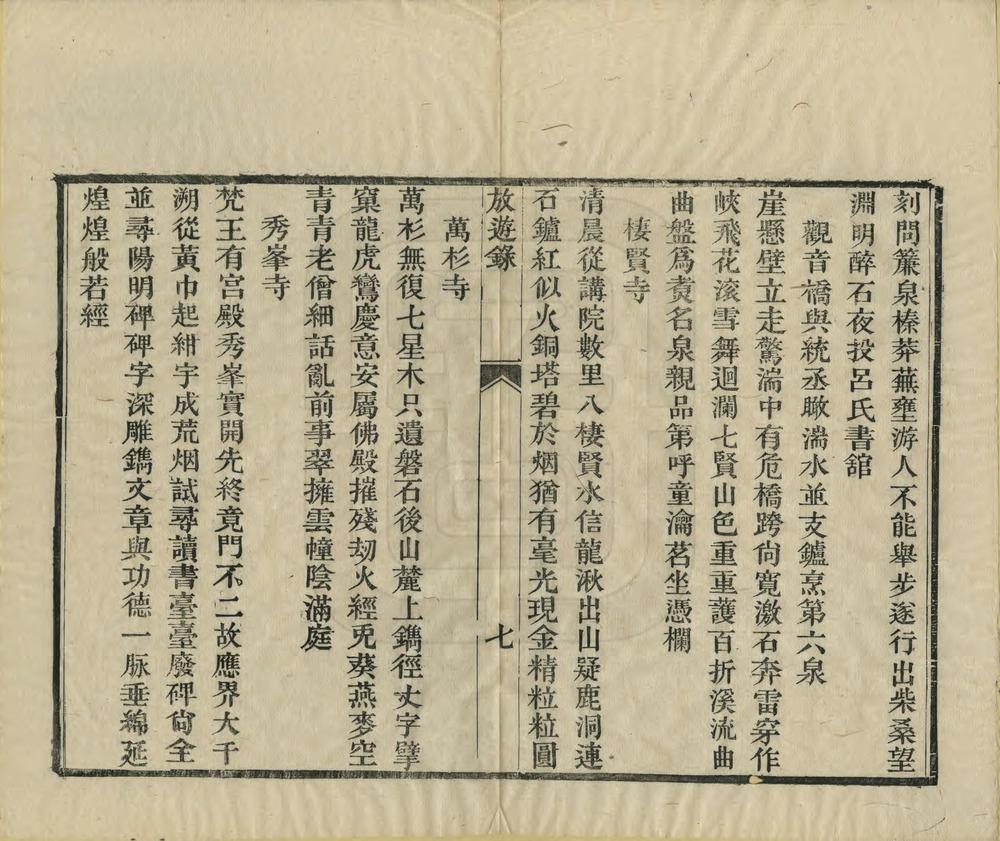 刻問簾泉榛莽蕪壅游人不能舉步遂行出柴桑望
淵明醉石夜投呂氏書舘
觀音橋與統丞瞰湍水並支鑪烹第六泉
崖懸壁立走驚湍中有危橋跨尙寬激石奔雷穿作
峽飛花滚雪舞迴瀾七賢山色重重護百折溪流曲
曲盤爲煑名泉親品第呼童瀹茗坐憑欄
棲賢寺
清晨從講院數里入棲賢水信龍湫出山疑鹿洞連
石鑪紅似火銅塔碧於烟猶有毫光現金精粒粒圓
放遊錄
七
萬杉寺
萬杉無復七星木只遺磐石後山麓上鐫徑丈字擘
窠龍虎鸞慶意安屬佛殿摧殘刼火經兎葵燕麥空
青青老僧細話亂前事翠擁雲幢陰滿庭
秀峯寺
梵王有宮殿秀峯實開先終竟門不二故應界大千
溯從黃巾起紺宇成荒烟試尋讀書臺臺廢碑尙全
並尋陽明碑碑字深雕鐫文章與功德一脉垂綿延
煌煌般若經